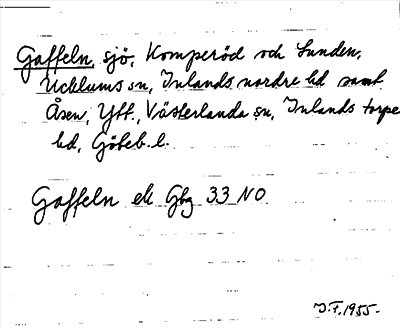 Gaffeln, sjö, Komperöd och Lunden,
Ucklums sn, Inlands nordre hd samt
Åsen, Ytt., Västerlanda sn, Inlands torpe
hd, Göteb. l.
Gaffeln ek Gbg 33 NO
J.F. 1955.